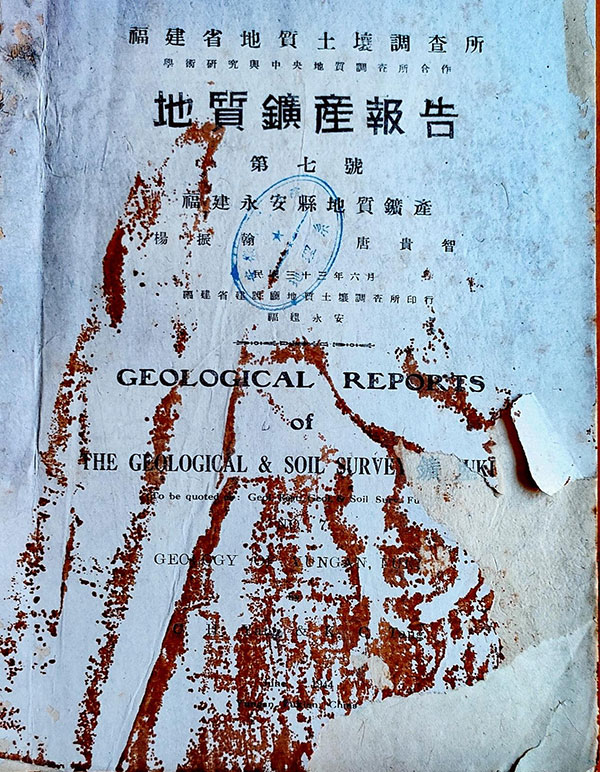 福建省地質土壤調查所
學術研究與中央地質調查所合作
地質鑛產報告
第七號
福建永安縣地質鑛產
楊振翰 唐貴智
民國三十三年六月
福建省建設廳地質土壤調查所印行
福建永安
GEOLOGICAL REPORTS
of
THE GEOLOGICAL & SOIL SURVEY UKI
To be quoted Geol. & Soil Surv. Fu
No. 7
GEOLOGY OF YUNGAN,
&
1944
Yungan, Fukien, China